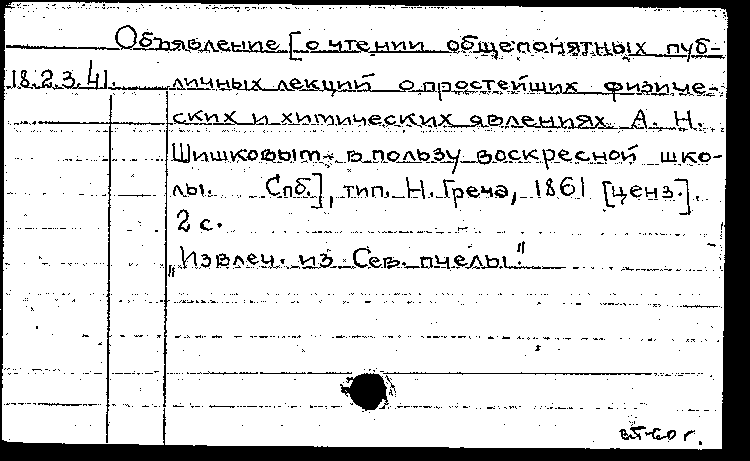 Объявление [о чтении общепонятных пуб-
18.2.3.41. личных лекций о простейших физиче-
ских и химических явлениях А. Н.
Шишковым в пользу воскресной шко-
лы. Спб.], тип. Н. Греча, 1861 [ценз.].
2 с.
"Извлеч. из Сев. пчелы."